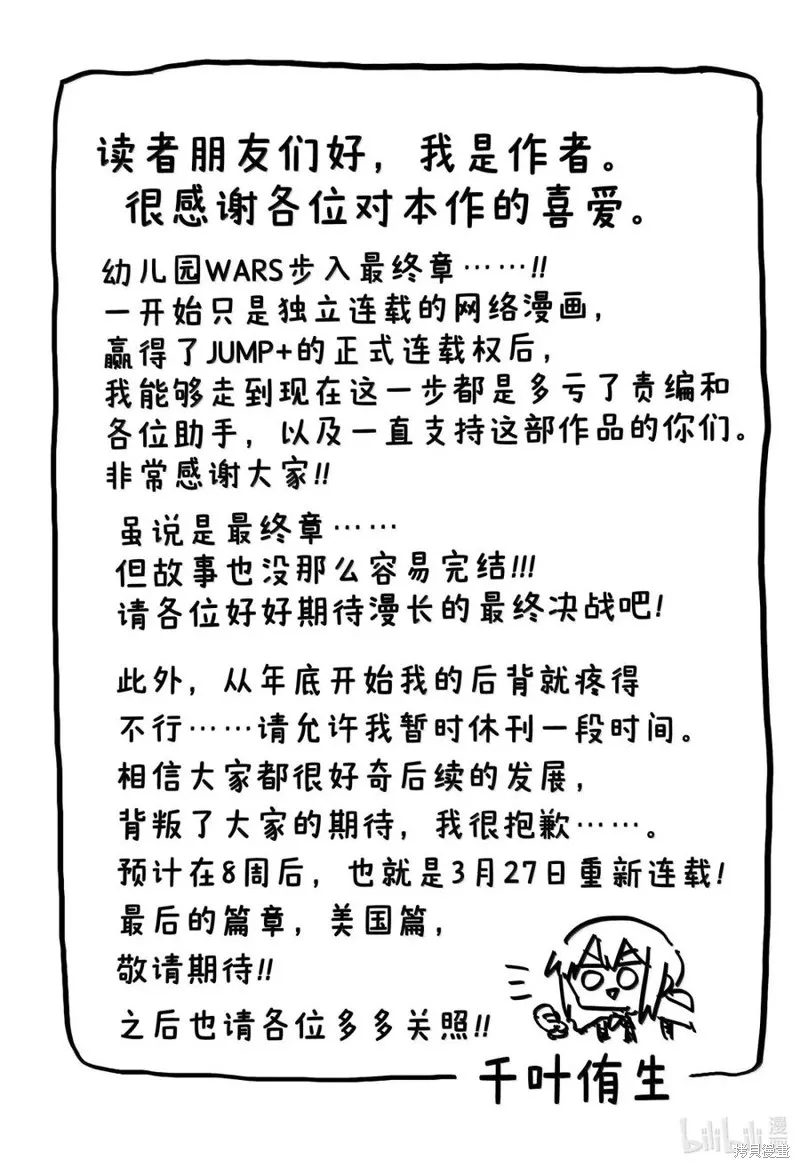 读者朋友们好，我是作者。
很感谢各位对本作的喜爱。
幼儿园WARS步入最终章……!!
一开始只是独立连载的网络漫画，
赢得了JUMP+的正式连载权后，
我能够走到现在这一步都是多亏了责编和
各位助手，以及一直支持这部作品的你们。
非常感谢大家!!
虽说是最终章……
但故事也没那么容易完结!!!
请各位好好期待漫长的最终决战吧!
此外，从年底开始我的后背就疼得
不行……请允许我暂时休刊一段时间。
相信大家都很好奇后续的发展，
背叛了大家的期待，我很抱歉……。
预计在8周后，也就是3月27日重新连载!
最后的篇章，美国篇，
敬请期待!!
之后也请各位多多关照!!
千叶侑生
bilibili漫画
拷贝漫畫